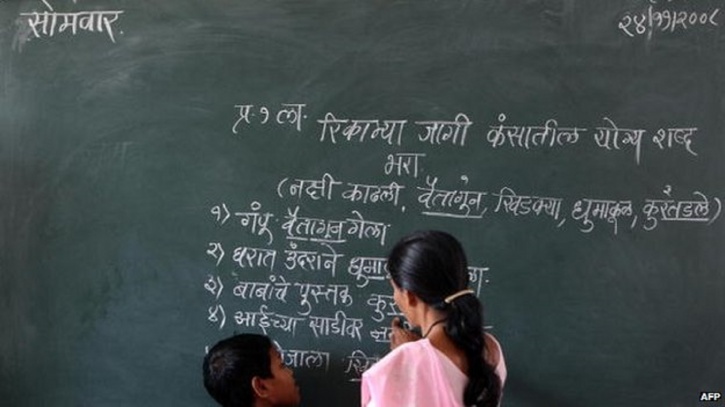 सोमवार.
२४/११/२००८
प्र.१ ला. रिकाम्या जागी कंसातील योग्य शब्द
भरा.
(नक्षी काढली, वैतागून, खिडक्या, धुमाकूळ, कुरतडले)
१) गंपू वैतागून गेला
२) घरात उंदराने धुमा ला.
३) बाबांचे पुस्तक
४) आईच्या साडीवर
AFP